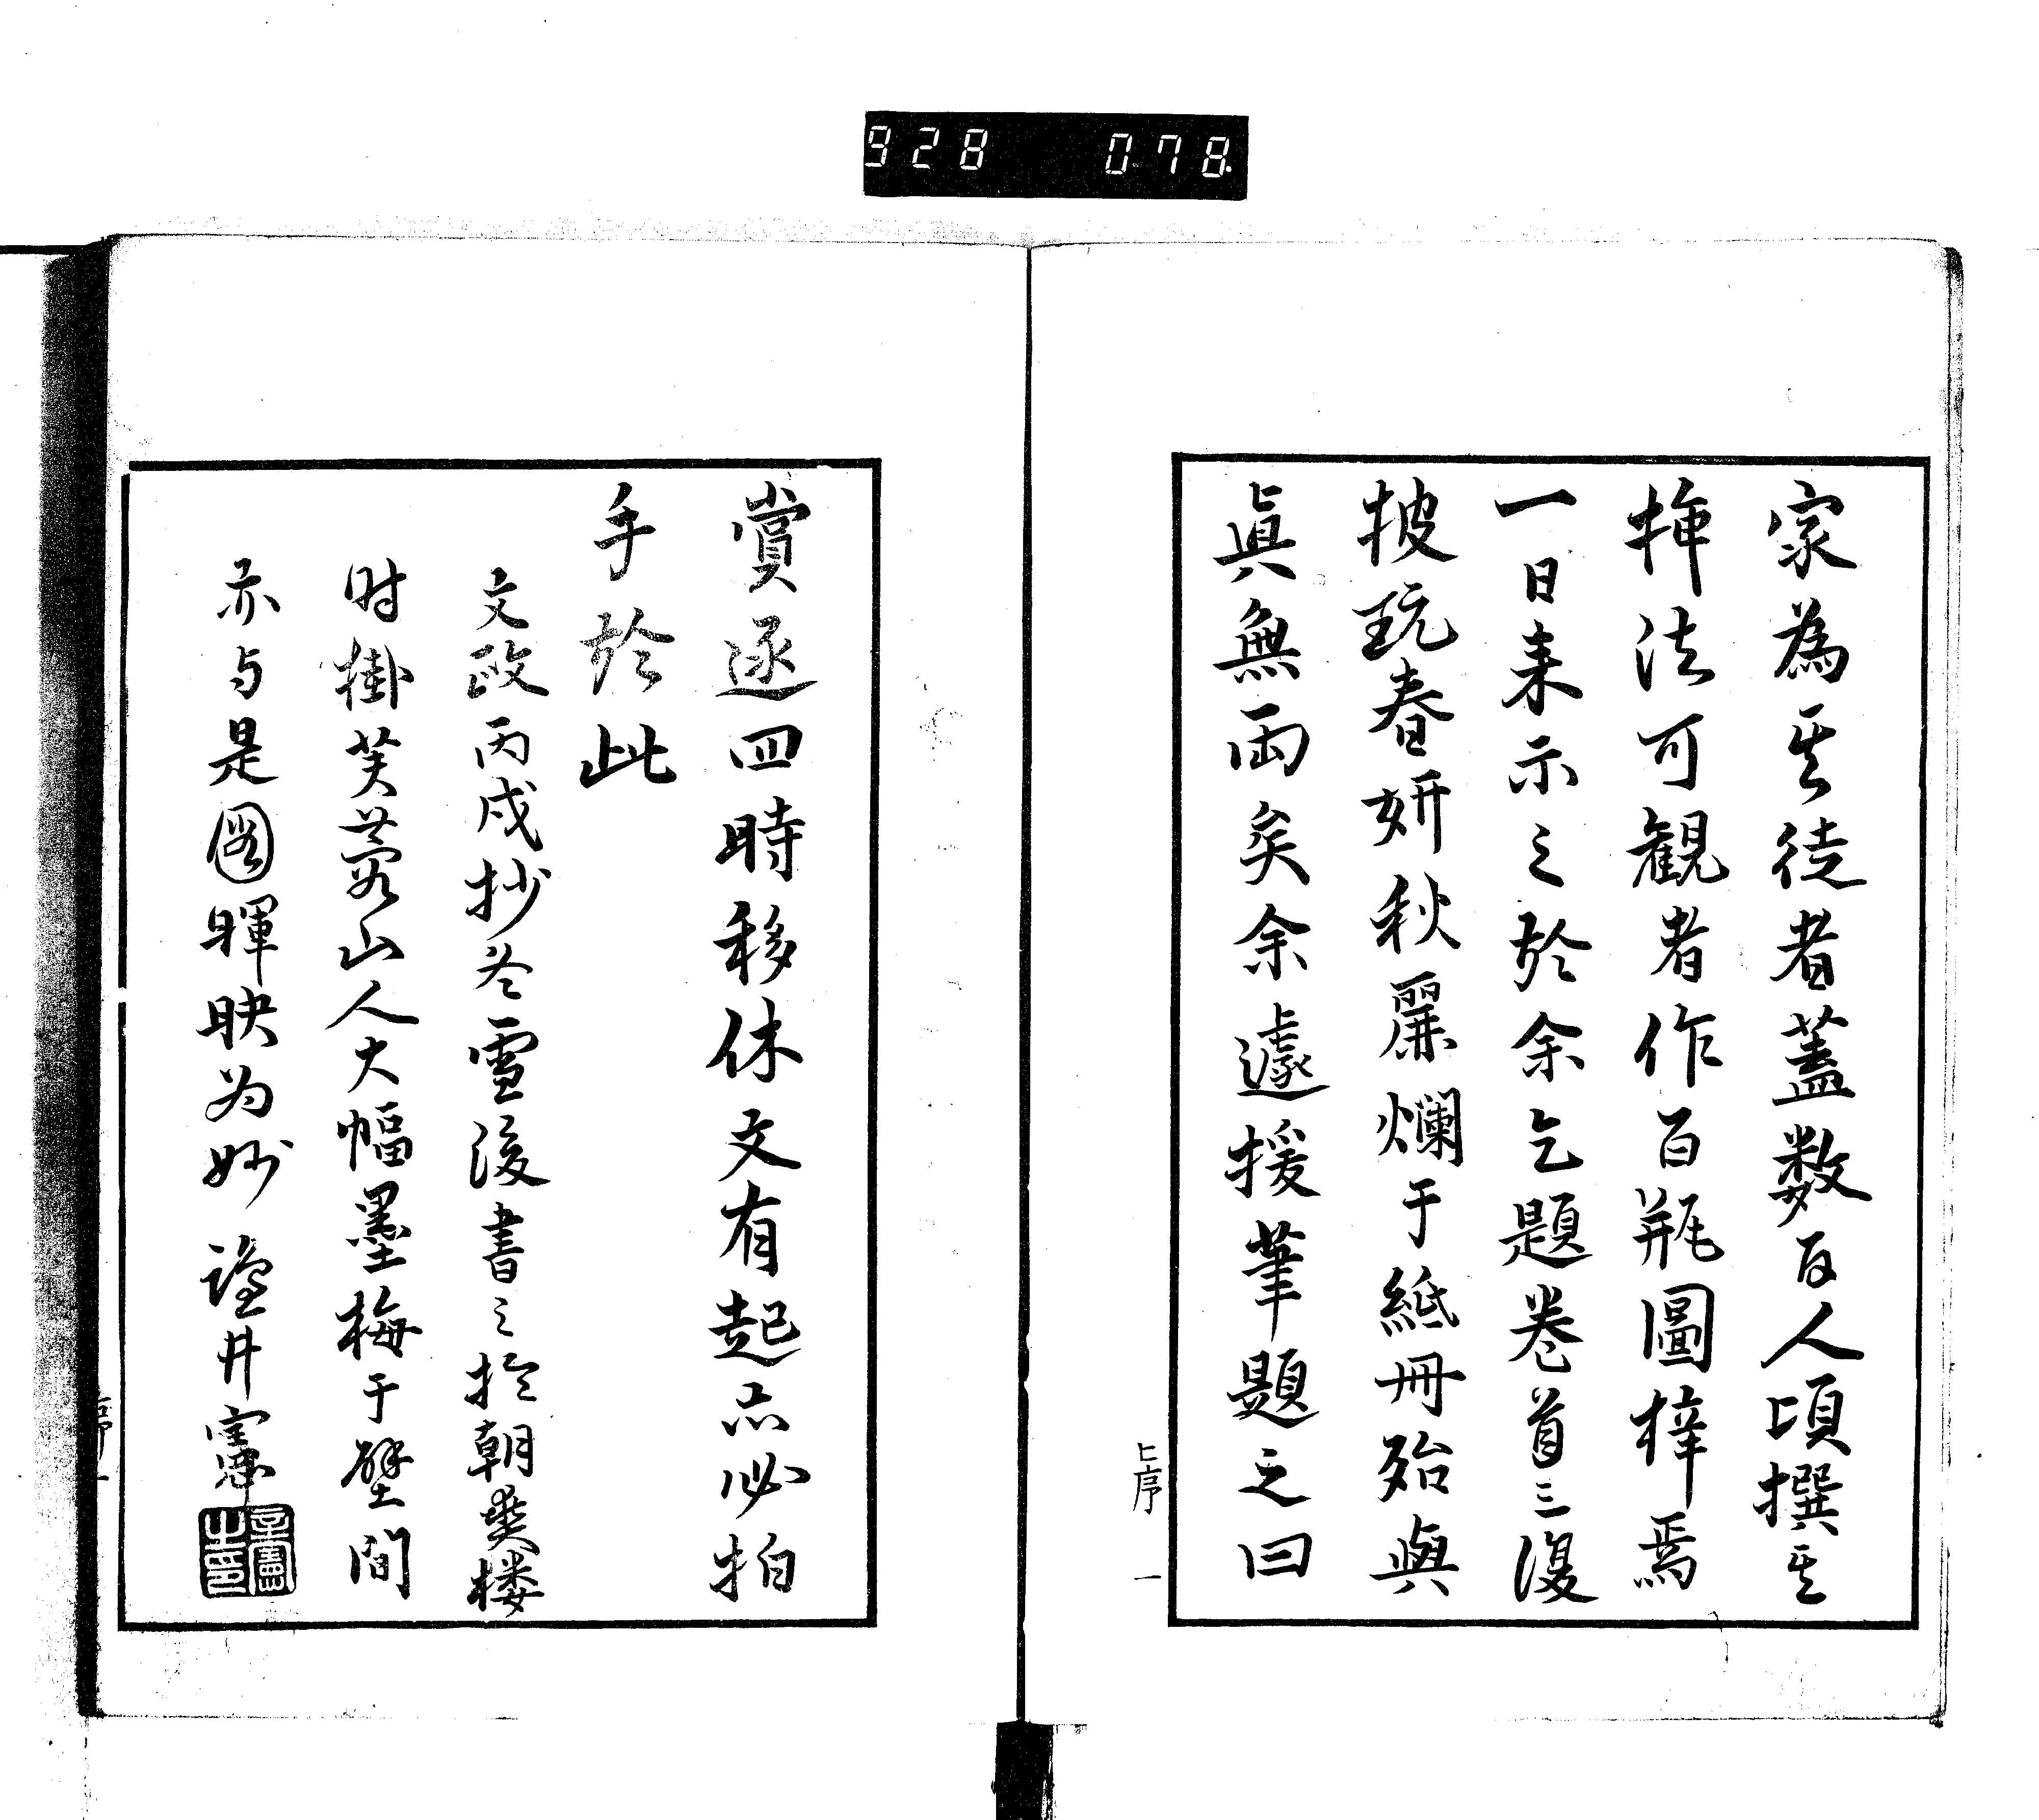 928 078
家為其徒者蓋数百人頃撰其
挿法可観者作百瓶圖梓焉
一日来示之於余乞題巻首三復
披玩春妍秋麗爛于紙冊殆與
眞無両矣余遽援筆題之曰
上序 一
賞逐四時移休文有起亦必拍
手於此
文政丙戌抄冬雪後書之於朝爽楼
时掛芙蓉山人大幅墨梅于壁間
亦与是圖暉映为妙 井寧